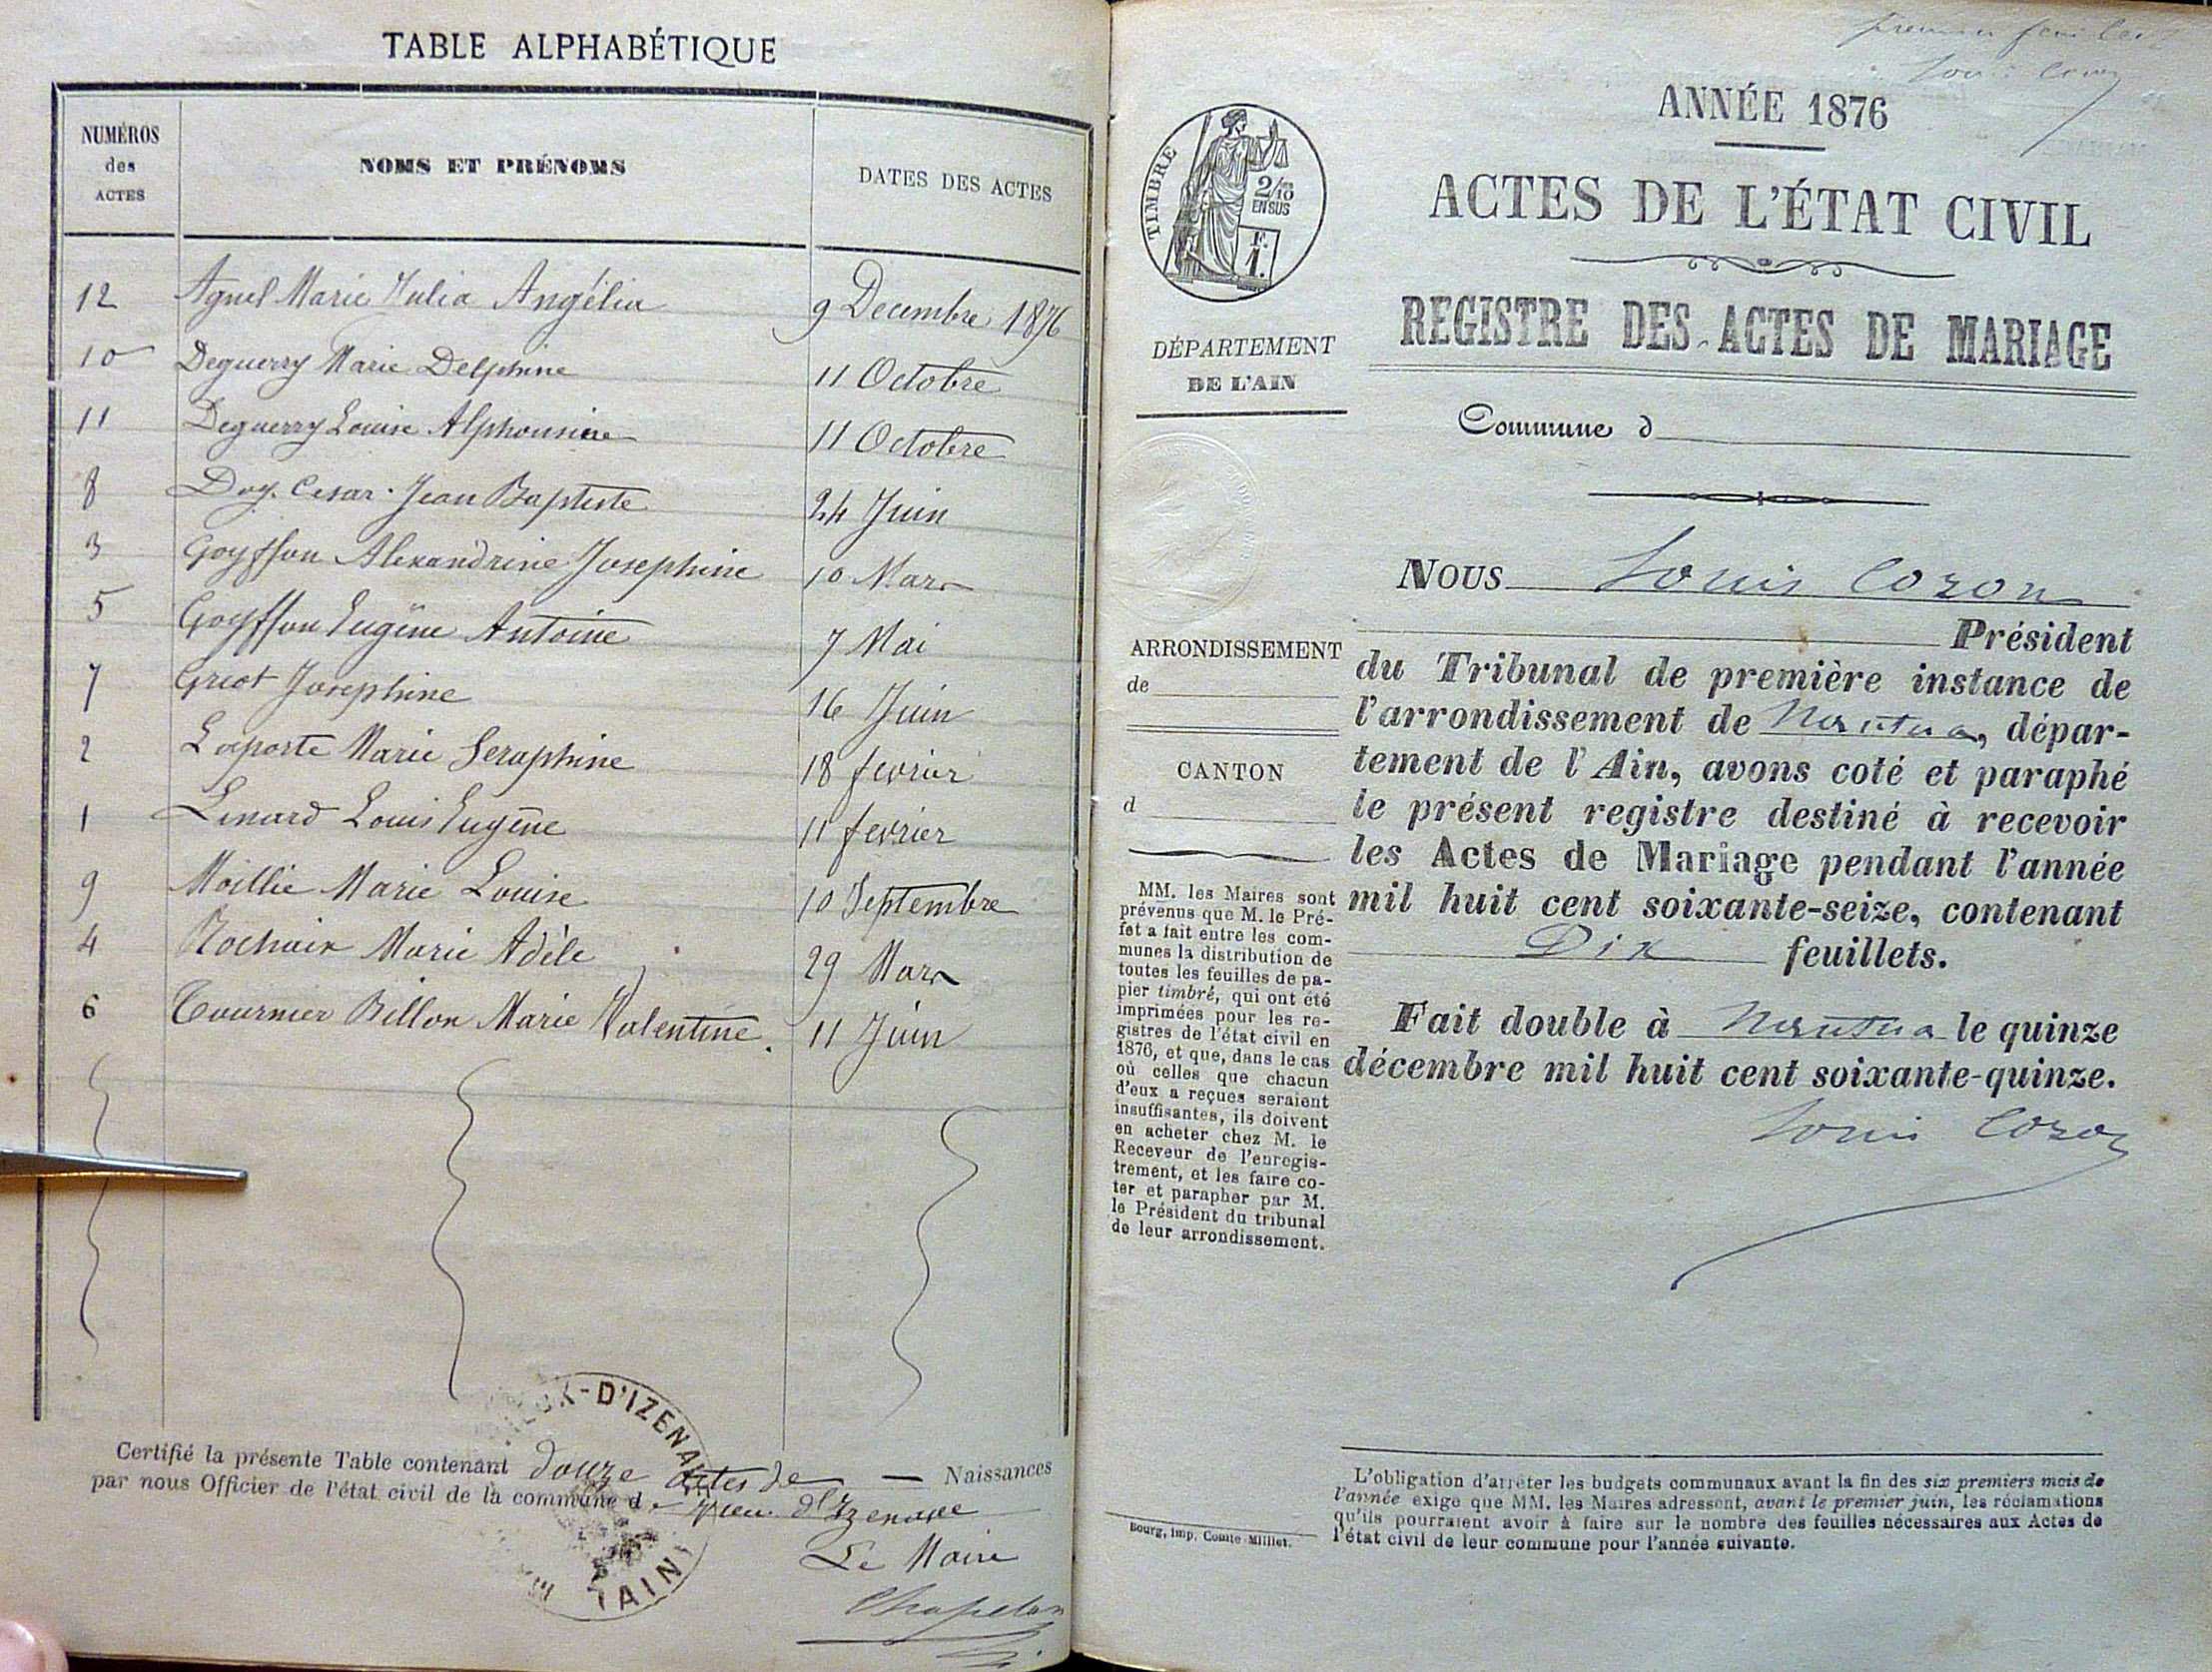 TABLE ALPHABÉTIQUE
NUMÉROS des ACTES
NOMS ET PRÉNOMS
DATES DES ACTES
12 Agnel Marie Julia Angélia 9 Decembre 1876
10 Deguerry Marie Delphine 11 Octobre
11 Deguerry Louise Alphonsine 11 Octobre
8 Doy. Cesar. Jean Baptiste 24 Juin
3 Goyffon Alexandrine Josephine 10 Mars
5 Goyffon Eugène Antoine 7 Mai
7 Griot Josephine 16 Juin
2 Laporte Marie Seraphine 18 fevrier
1 Lenard Louis Eugène 11 fevrier
9 Maillie Marie Louise 10 Septembre
4 Rochaix Marie Adèle 29 Mars
6 Tournier Billon Marie Valentine. 11 Juin
Certifié la présente Table contenant douze actes de Naissances
par nous Officier de l'état civil de la commune de Vieu d'Izenave
Le Maire
Chapelan
D'IZENAVE
(AIN)
premier feuillet
Louis Cozon
ANNÉE 1876
ACTES DE L'ÉTAT CIVIL
REGISTRE DES ACTES DE MARIAGE
TIMBRE
2/10
EN SUS
F.
1.
DÉPARTEMENT
DE L'AIN
Commune d
NOUS Louis Cozon
Président
du Tribunal de première instance de
l'arrondissement de Nantua, dépar-
tement de l'Ain, avons coté et paraphé
le présent registre destiné à recevoir
les Actes de Mariage pendant l'année
mil huit cent soixante-seize, contenant
Dix feuillets.
Fait double à Nantua le quinze
décembre mil huit cent soixante-quinze.
Louis Cozon
ARRONDISSEMENT
de
CANTON
d
MM. les Maires sont
prévenus que M. le Pré-
fet a fait entre les com-
munes la distribution de
toutes les feuilles de pa-
pier timbré, qui ont été
imprimées pour les re-
gistres de l'état civil en
1876, et que, dans le cas
où celles que chacun
d'eux a reçues seraient
insuffisantes, ils doivent
en acheter chez M. le
Receveur de l'enregis-
trement, et les faire co-
ter et parapher par M.
le Président du tribunal
de leur arrondissement.
Bourg, imp. Comte-Milliet.
L'obligation d'arrêter les budgets communaux avant la fin des six premiers mois de
l'année exige que MM. les Maires adressent, avant le premier juin, les réclamations
qu'ils pourraient avoir à faire sur le nombre des feuilles nécessaires aux Actes de
l'état civil de leur commune pour l'année suivante.